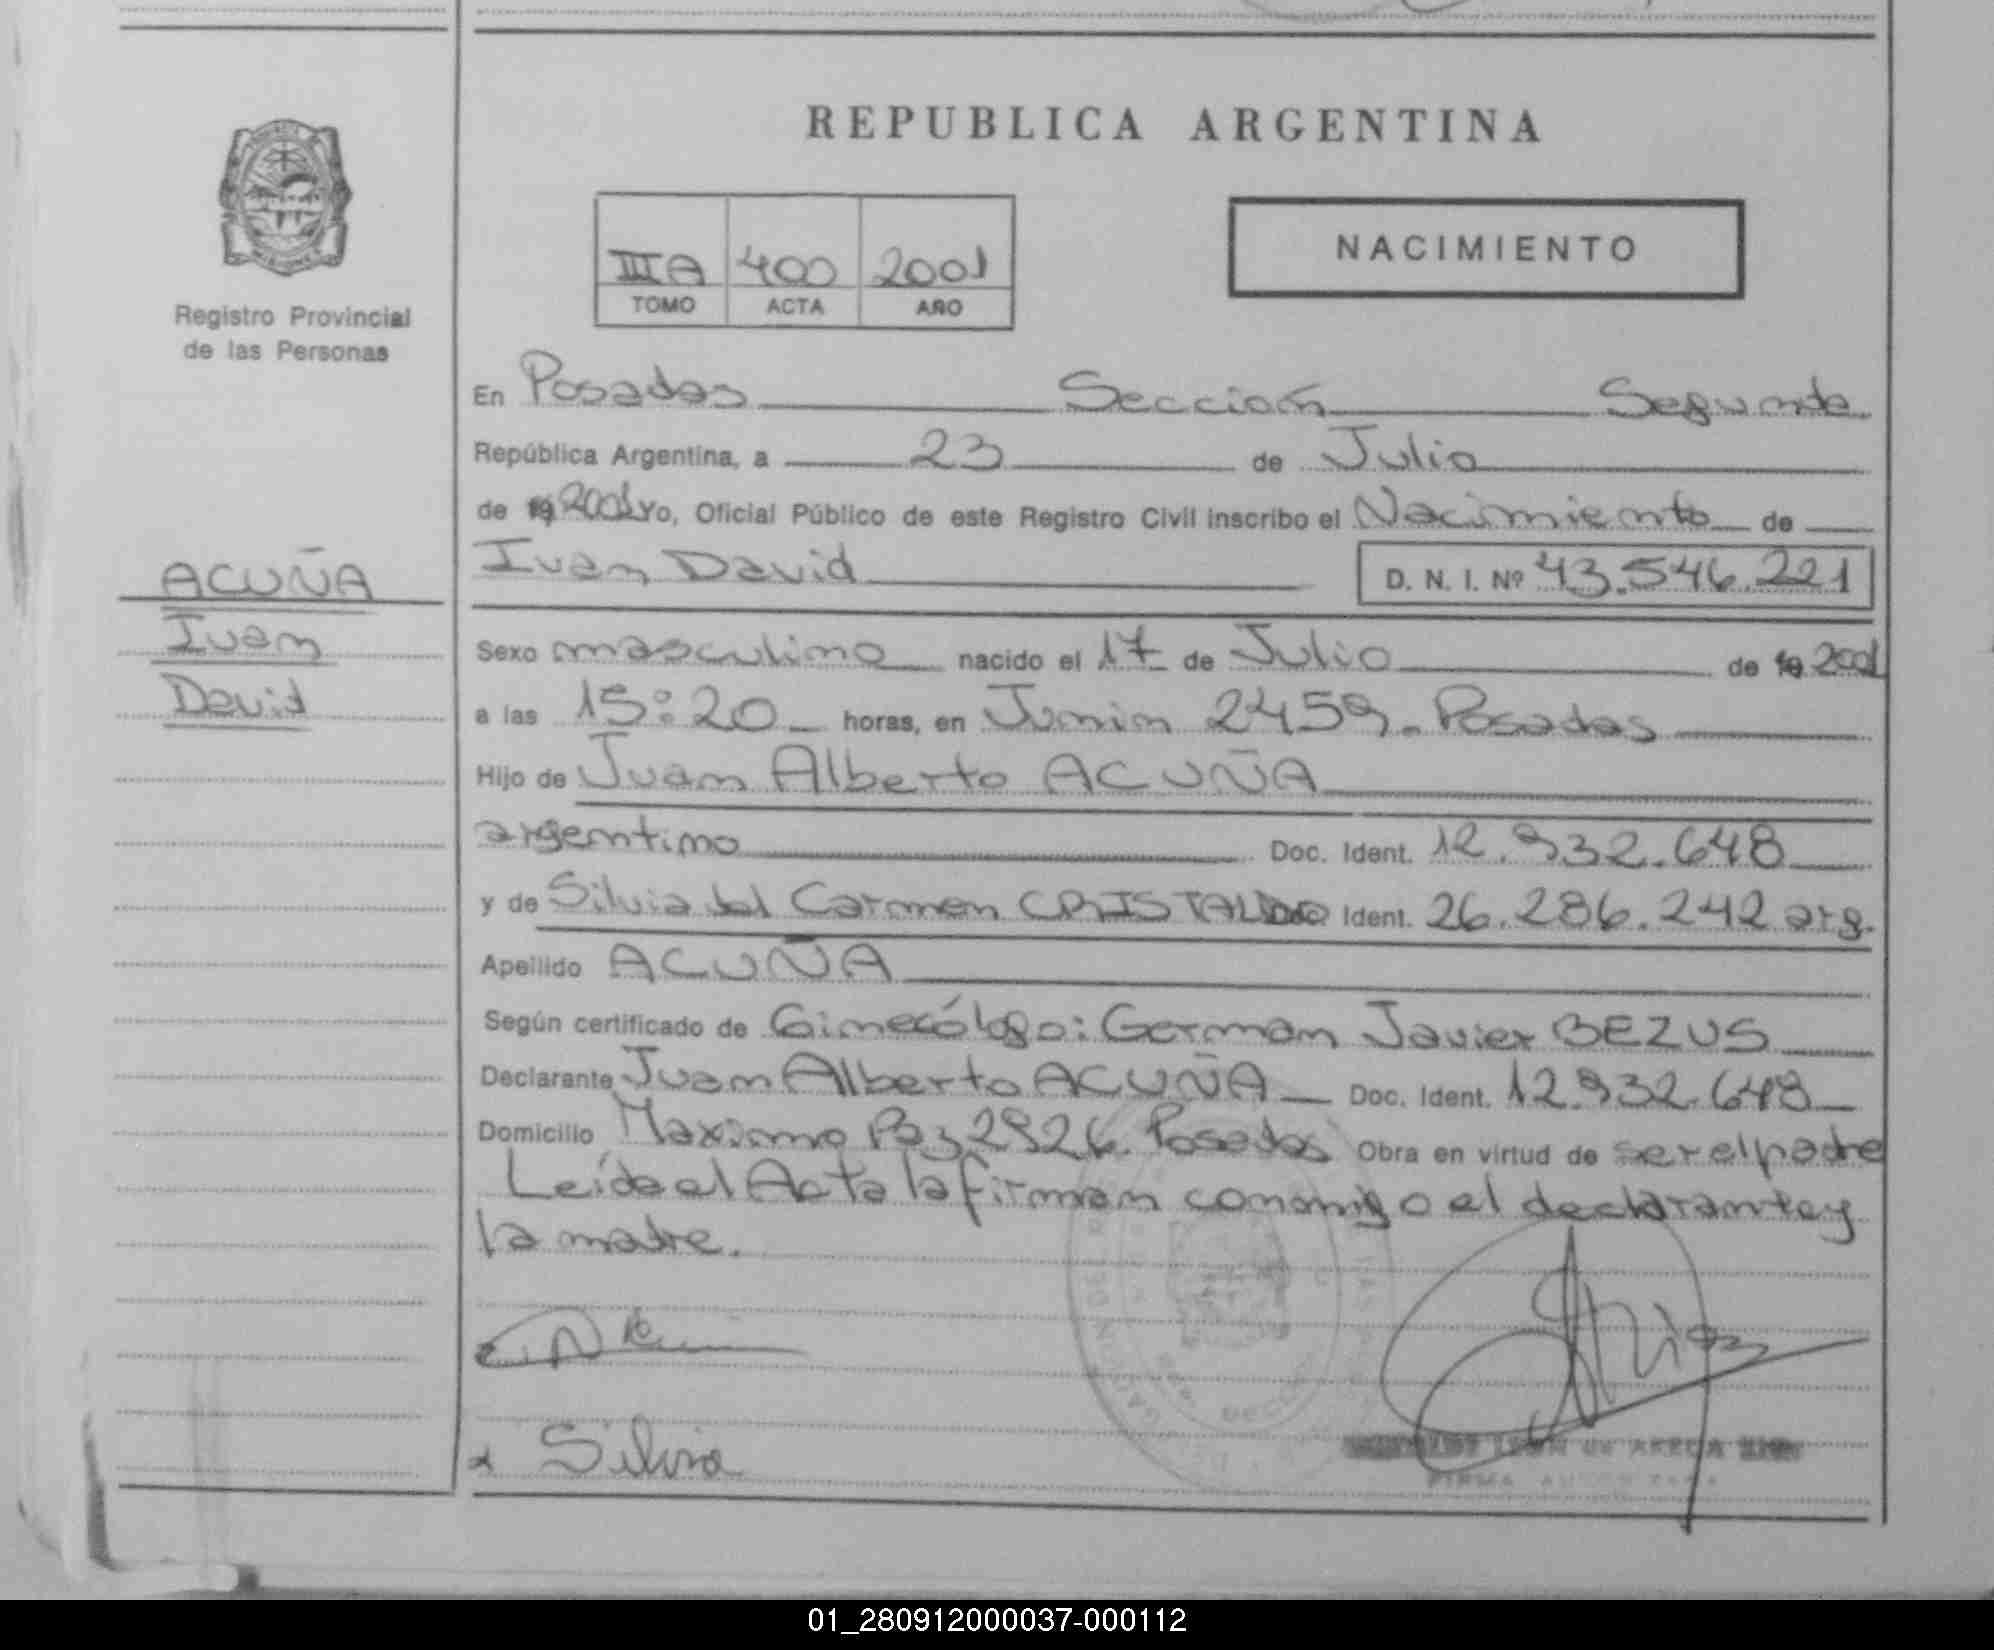 REPUBLICA ARGENTINA
Registro Provincial
de las Personas
IIIA 400 2001
TOMO ACTA AÑO
NACIMIENTO
En Posadas Sección Segunda
República Argentina, a 23 de Julio
de 19 2001 Yo, Oficial Público de este Registro Civil inscribo el Nacimiento de
Ivan David D. N. I. Nº 43.546.221
ACUÑA
Ivan
David
Sexo masculino nacido el 17 de Julio de 19 2001
a las 15:20 horas, en Junin 2459. Posadas
Hijo de Juan Alberto ACUÑA
argentino Doc. Ident. 12.932.648
y de Silvia del Carmen CRISTALDO Doc. Ident. 26.286.242 arg.
Apellido ACUÑA
Según certificado de Ginecólogo: German Javier BEZUS
Declarante Juan Alberto ACUÑA Doc. Ident. 12.932.648
Domicilio Maximo Paz 2926. Posadas Obra en virtud de ser el padre
Leída el Acta la firman conmigo el declarante y
la madre.
Silvia
01_280912000037-000112